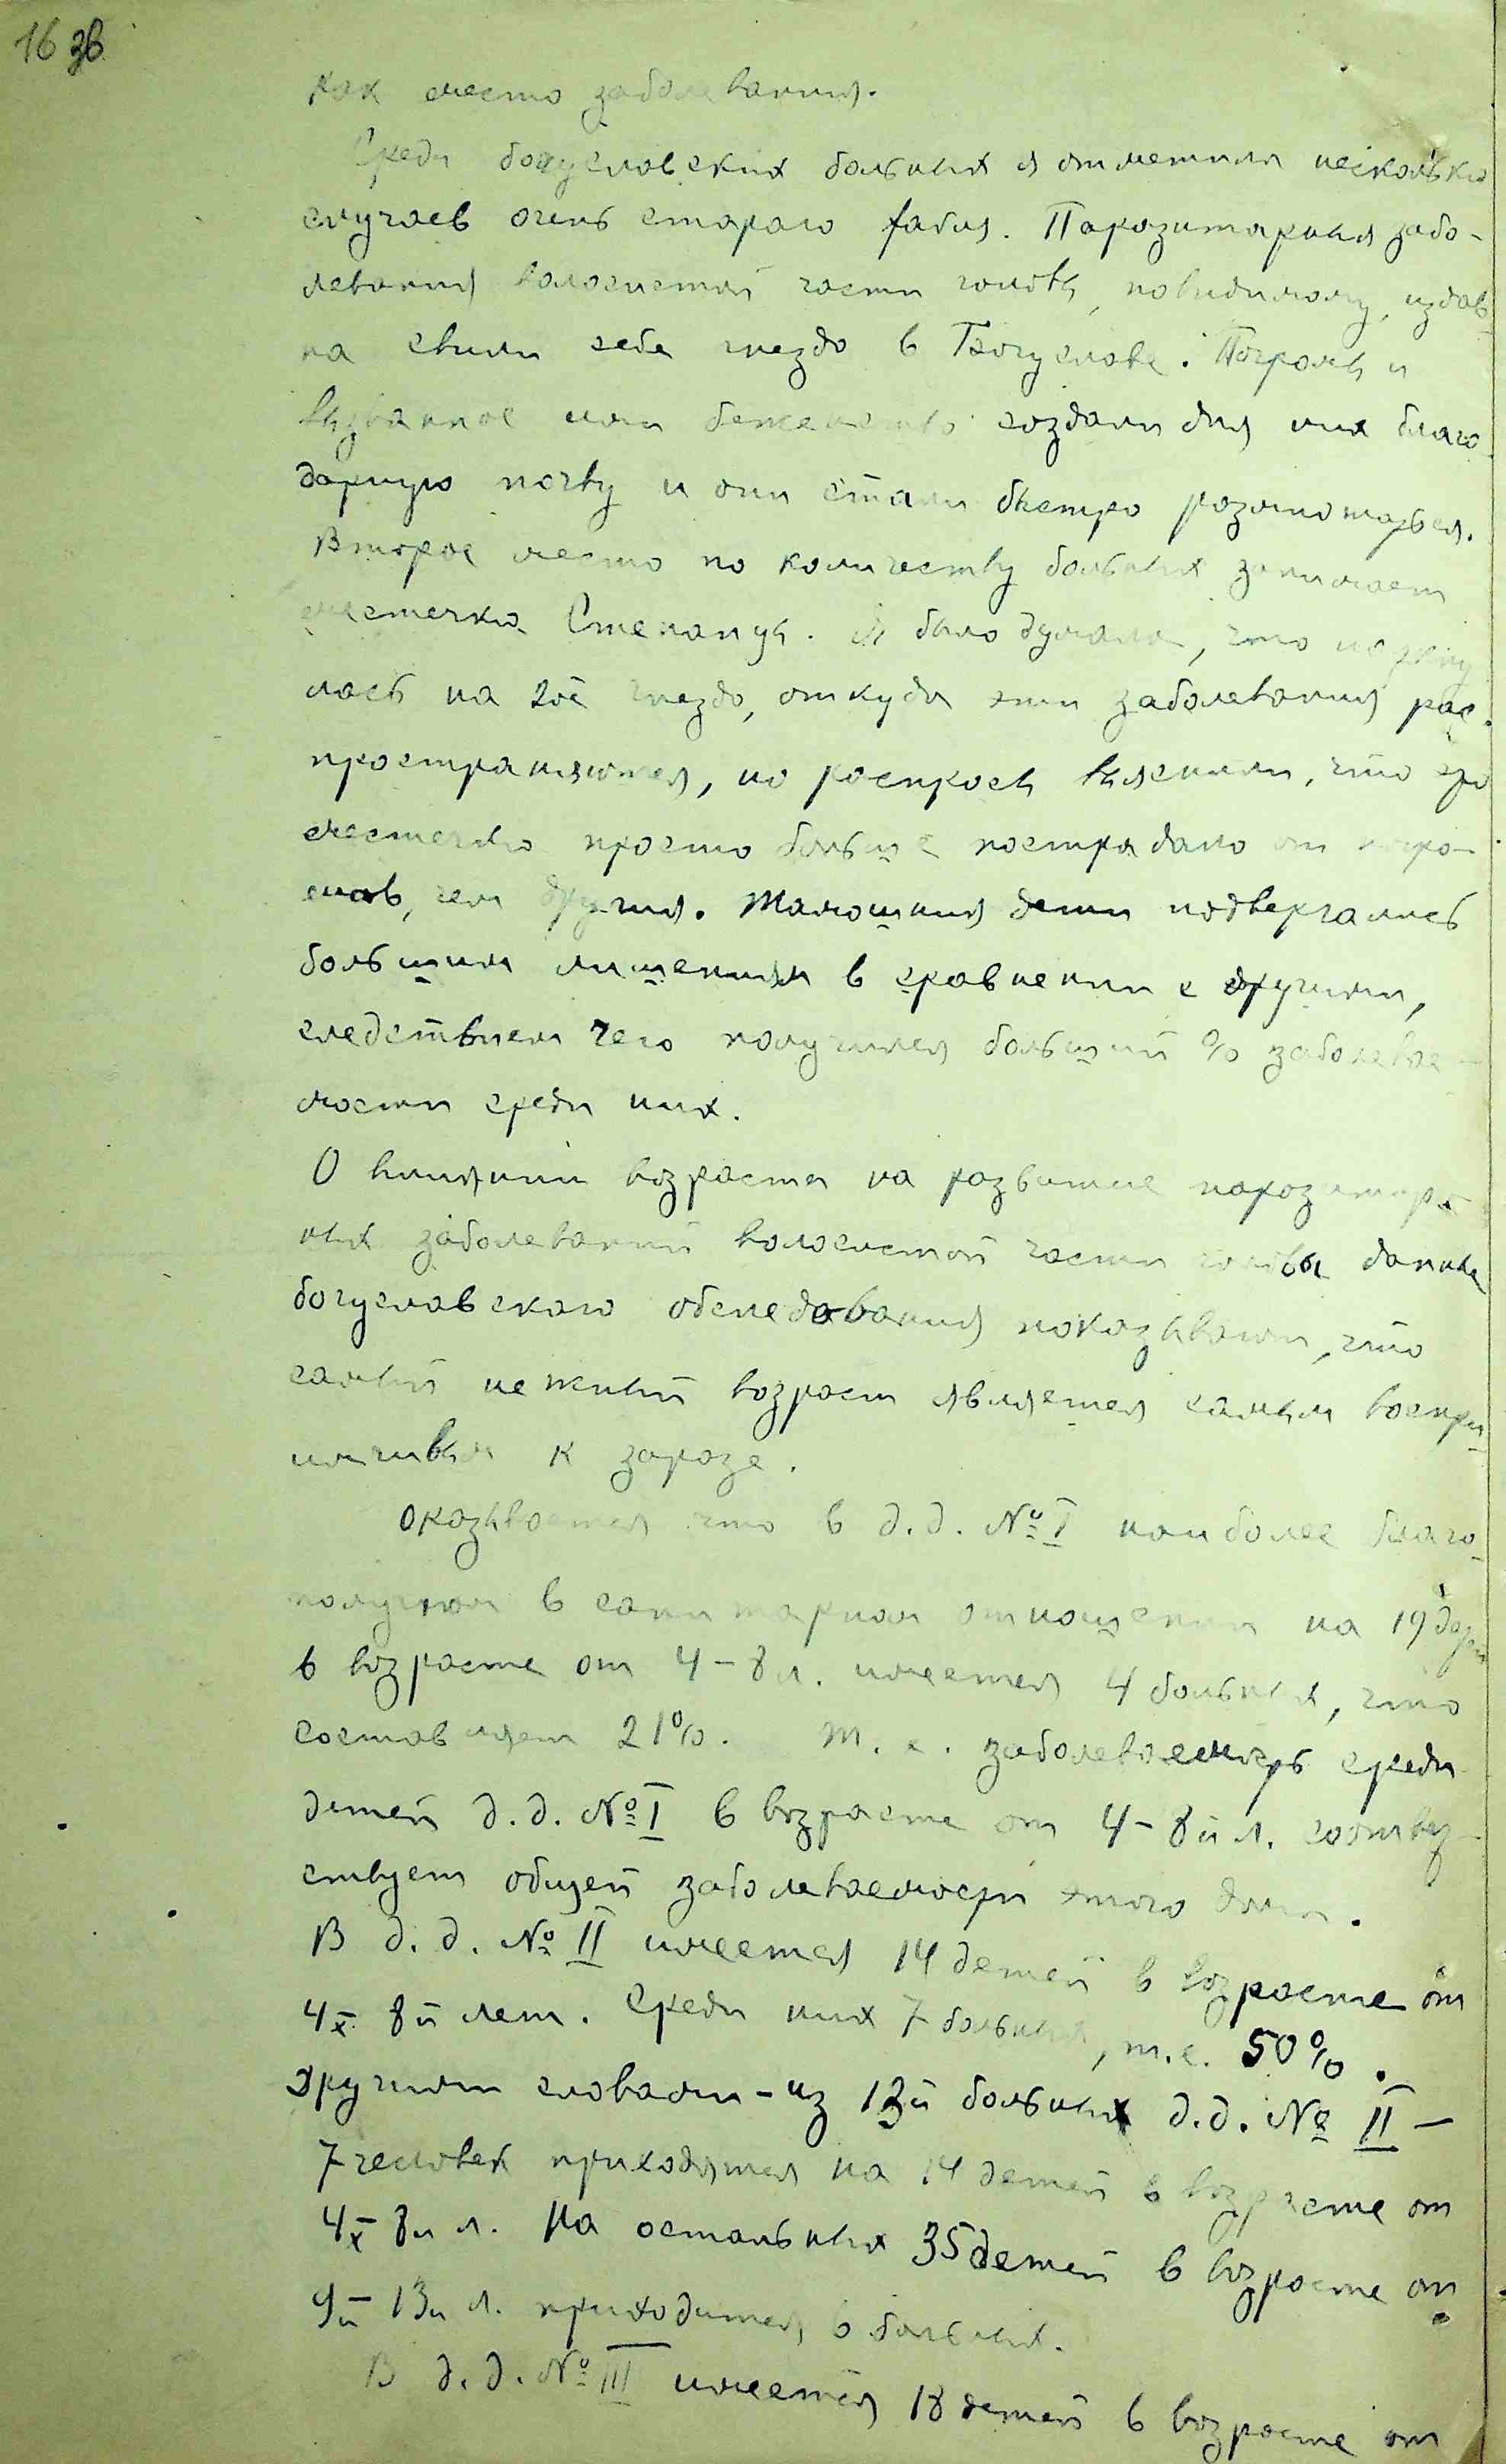 16 зв
как место заболевания.
Среди богуславских больных я отметила несколько
случаев очень старого favus. Паразитарныя забо-
левания волосистой части головы, повидимому, издав-
на свили себе гнездо в Богуславе. Погромы и
вызванное ими беженство создали для них благо-
дарную почву и они стали быстро размножаться.
Второе место по количеству больных занимает
местечко Степанцы. Я было думала, что наткну
лась на 2ое гнездо, откуда эти заболевания рас-
пространяются, но распросы выяснили, что это
местечко просто больше пострадало от погро-
мов, чем другия. Тамошния дети подвергались
большим лишениям в сравнении с другими,
следствием чего получился больший % заболевае-
мости среди них.
О влиянии возраста на развитие паразитар-
ных заболеваний волосистой части головы данные
богуславского обследования показывают, что
самый нежный возраст является самым воспри-
имчивым к заразе.
Оказывается что в д.д. № I наиболее благо-
получном в санитарном отношении на 19 детей
в возрасте от 4-8 л. имеется 4 больных, что
составляет 21%. Т. е. заболеваемость среди
детей д.д. № I в возрасте от 4-8и л. соответ-
ствует общей заболеваемости этого дома.
В д.д. № II имеется 14 детей в возрасте от
4х- 8и лет. Среди них 7 больных, т.е. 50%.
Другими словами - из 13и больных д.д. № II -
7 человек приходятся на 14 детей в возрасте от
4х- 8и л. На остальных 35 детей в возрасте от
9и- 13и л. приходится 6 больных.
В д.д. № III имеется 18 детей в возрасте от